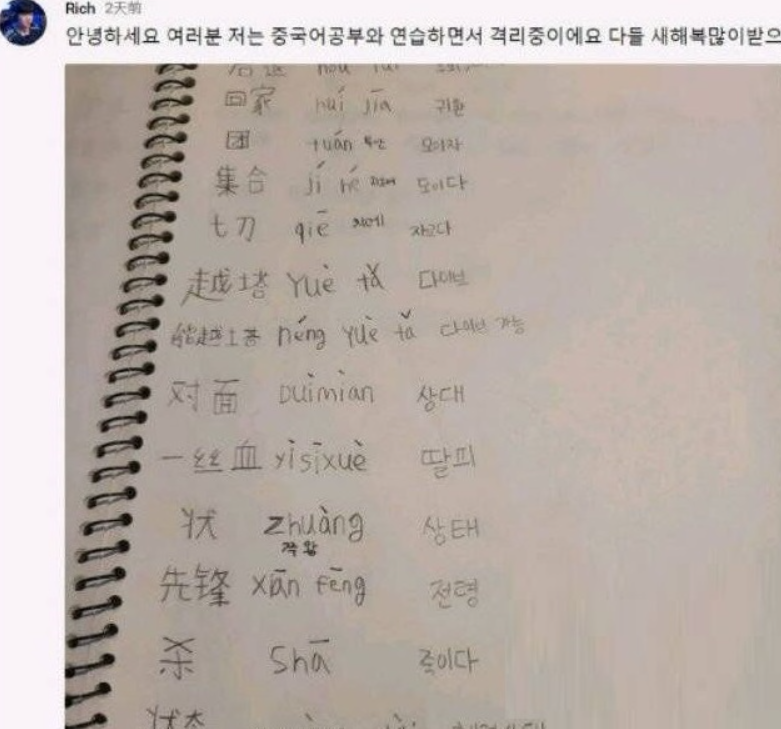 Rich 2天前
안녕하세요 여러분 저는 중국어공부와 연습하면서 격리중이에요 다들 새해복많이받으
hòu tuì
回家 huí jiā 귀환
团 tuán 모이자
集合 jí hé 모이다
切 qiē 치에 자르다
越塔 Yuè tǎ 다이브
能越塔 néng yuè tǎ 다이브 가능
对面 Duìmiàn 상대
一丝血 yìsīxuè 딸피
状 zhuàng 상태
쭈왕
先锋 xiān fēng 전령
杀 Shā 죽이다
状态